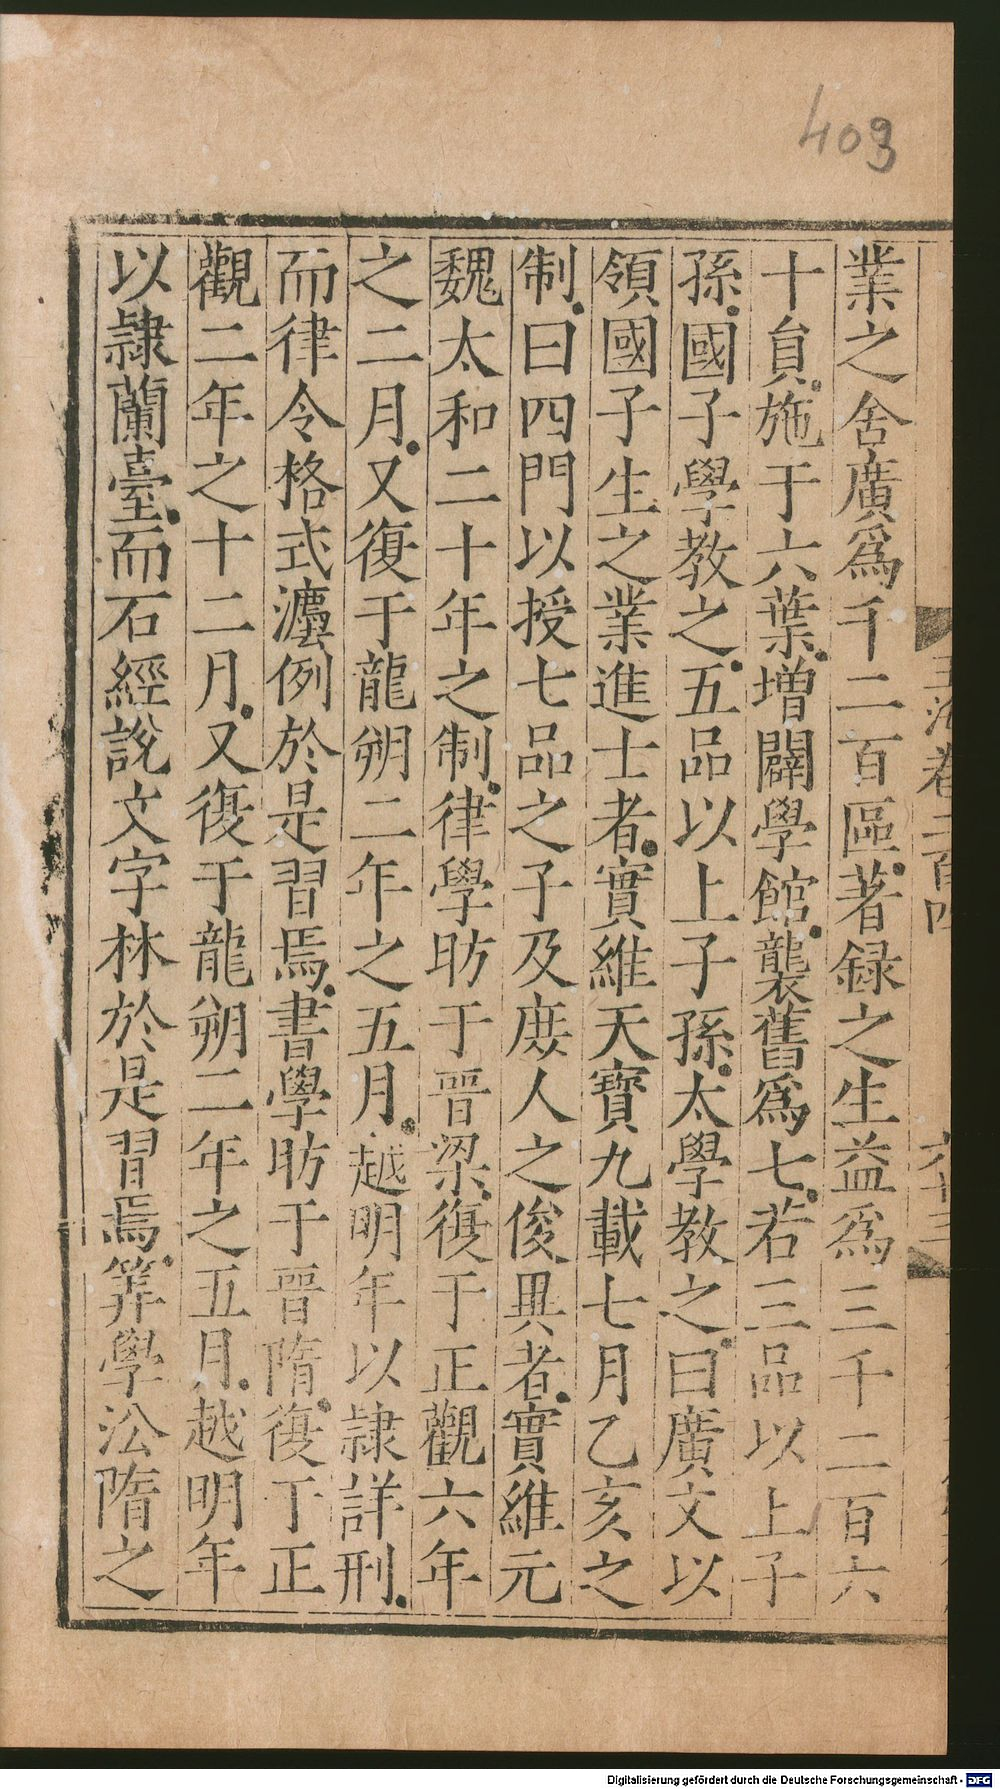 409
業之舍廣爲千二百區著録之生益爲三千二百六
十貟施于六葉增闢學館襲舊爲七若三品以上子
孫國子學教之五品以上子孫太學教之曰廣文以
領國子生之業進士者實維天寶九載七月乙亥之
制曰四門以授七品之子及庻人之俊異者實維元
魏太和二十年之制律學昉于晉梁復于正觀六年
之二月又復于龍朔二年之五月越明年以隷詳刑
而律令格式灋例於是習焉書學昉于晉隋復丁正
觀二年之十二月又復于龍朔二年之五月越明年
以隷蘭臺而石經說文字林於是習焉筭學㳂隋之
Digitalisierung gefördert durch die Deutsche Forschungsgemeinschaft - DFG